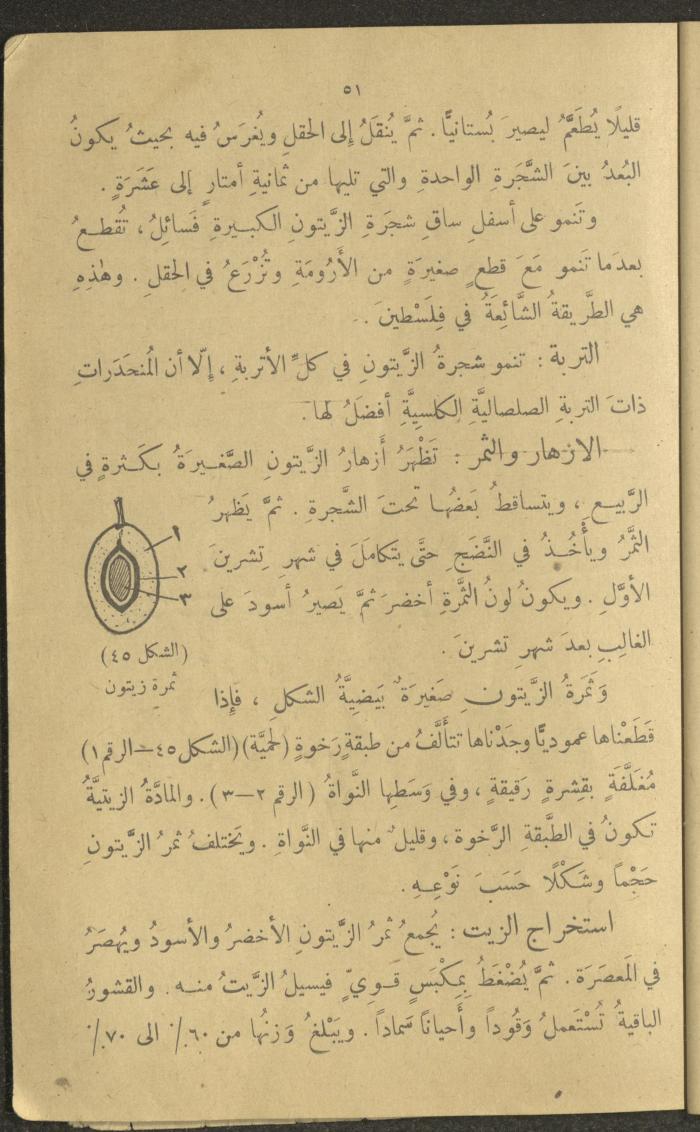 ٥١
قليلًا يُطَعَّمُ ليصيرَ بُستانيًّا . ثمَّ يُنقَلُ إلى الحقلِ ويُغرَسُ فيه بحيثُ يكونُ
البُعدُ بينَ الشَّجَرةِ الواحدةِ والتي تليها من ثمانيةِ أمتارٍ إلى عَشَرَةٍ .
وتَنمو على أسفلِ ساقِ شجَرَةِ الزَّيتونِ الكبيرةِ فَسائِلُ ، تُقطعُ
بعدَما تَنمو مَعَ قطعٍ صغيرَةٍ من الأَرُومَةِ وتُزْرَعُ في الحقلِ . وهٰذِهِ
هي الطَّريقةُ الشَّائِعَةُ في فِلَسْطينَ .
التربة : تنمو شجرةُ الزَّيتونِ في كلِّ الأتربةِ ، إِلّا أن المُنحَدَراتِ
ذاتَ التربةِ الصلصاليَّةِ الكلسيَّةِ أفضَلُ لها .
الازهار والثمر : تَظْهَرُ أَزهارُ الزَّيتونِ الصَّغيرَةُ بكَثرةٍ في
الرَّبيع ، ويتساقطُ بَعضُها تحتَ الشَّجرةِ . ثمَّ يَظهرُ
الثَّمرُ ويأْخُذُ في النَّضَجِ حتَّى يتكامَلَ في شهرِ تِشرينَ
الأوَّلِ . ويكونُ لونُ الثَّمرَةِ أخضرَ ثمَّ يَصيرُ أسودَ على
الغالِبِ بعدَ شهرِ تشرينَ .
١
٢
٣
(الشكل ٤٥)
ثمرة زيتون
وَثَمرَةُ الزَّيتونِ صَغيرَةٌ بَيضِيَّةُ الشكلِ ، فإِذا
قَطَعْناها عموديًّا وجَدْناها تتأَلَّفُ من طبقةٍ رَخوةٍ (لحميَّة) (الشكل ٤٥ – الرقم ١)
مُغَلَّفَةٍ بقِشرةٍ رَقيقةٍ ، وفي وَسَطِها النَّواةُ (الرقم ٢ – ٣) . والمادَّةُ الزيتيَّةُ
تكونُ في الطَّبقةِ الرَّخوة ، وقليلٌ منها في النَّواةِ . ويَختلفُ ثمرُ الزَّيتونِ
حَجْماً وشَكْلًا حَسَبَ نَوْعِهِ .
استخراج الزيت : يُجمعُ ثمرُ الزَّيتونِ الأخضرُ والأسودُ ويُهصَرُ
في المَعصَرَة . ثمَّ يُضْغَطُ بِمِكْبَسٍ قَوِيٍّ فيسيلُ الزَّيتُ منه . والقشورُ
الباقيةُ تُسْتَعملُ وَقُوداً وأَحياناً سَماداً . ويَبْلغُ وَزنُها من ٦٠٪ الى ٧٠٪